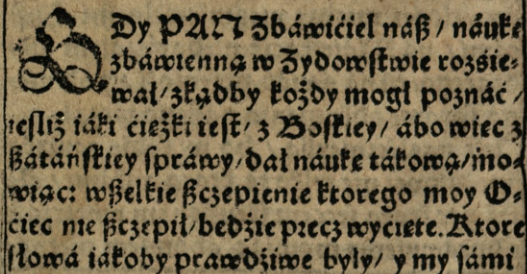 GDy PAN Zbáwićiel náß / náukę
zbáwienną w Zydowſtwie rozśie⸗
wał / zkądby kożdy mogł poznáć /
ieſliż iáki ćieżki ieſt / z Boſkiey / ábo wiec z
ßátáńſkiey ſpráwy / dał náukę tákową / mo⸗
wiąc: wßelkie ßczepienie ktorego moy O⸗
ćiec nie ßczepił / będźie precz wyćięte. Ktore
ſłowá iákoby prawdźiwe były / y my ſámi